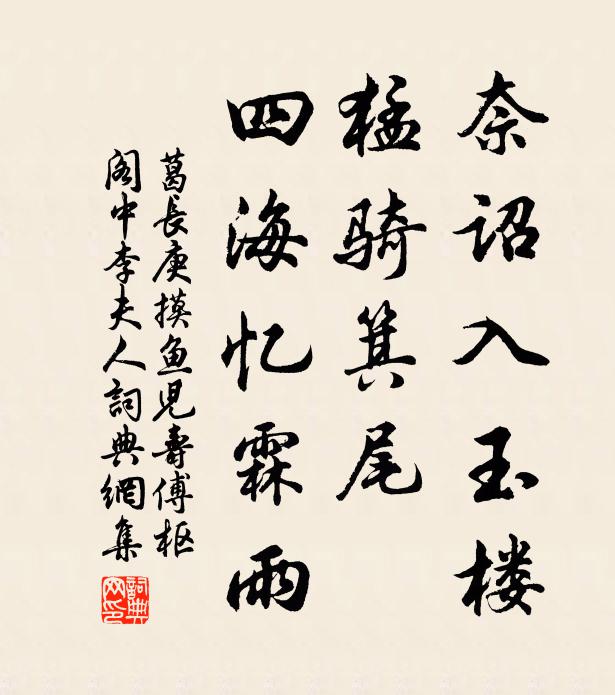 奈诏入玉楼
猛骑箕尾
四海忆霖雨
葛長庚摸鱼児壽傅枢
阁中李夫人詞典網集
詞典
网印